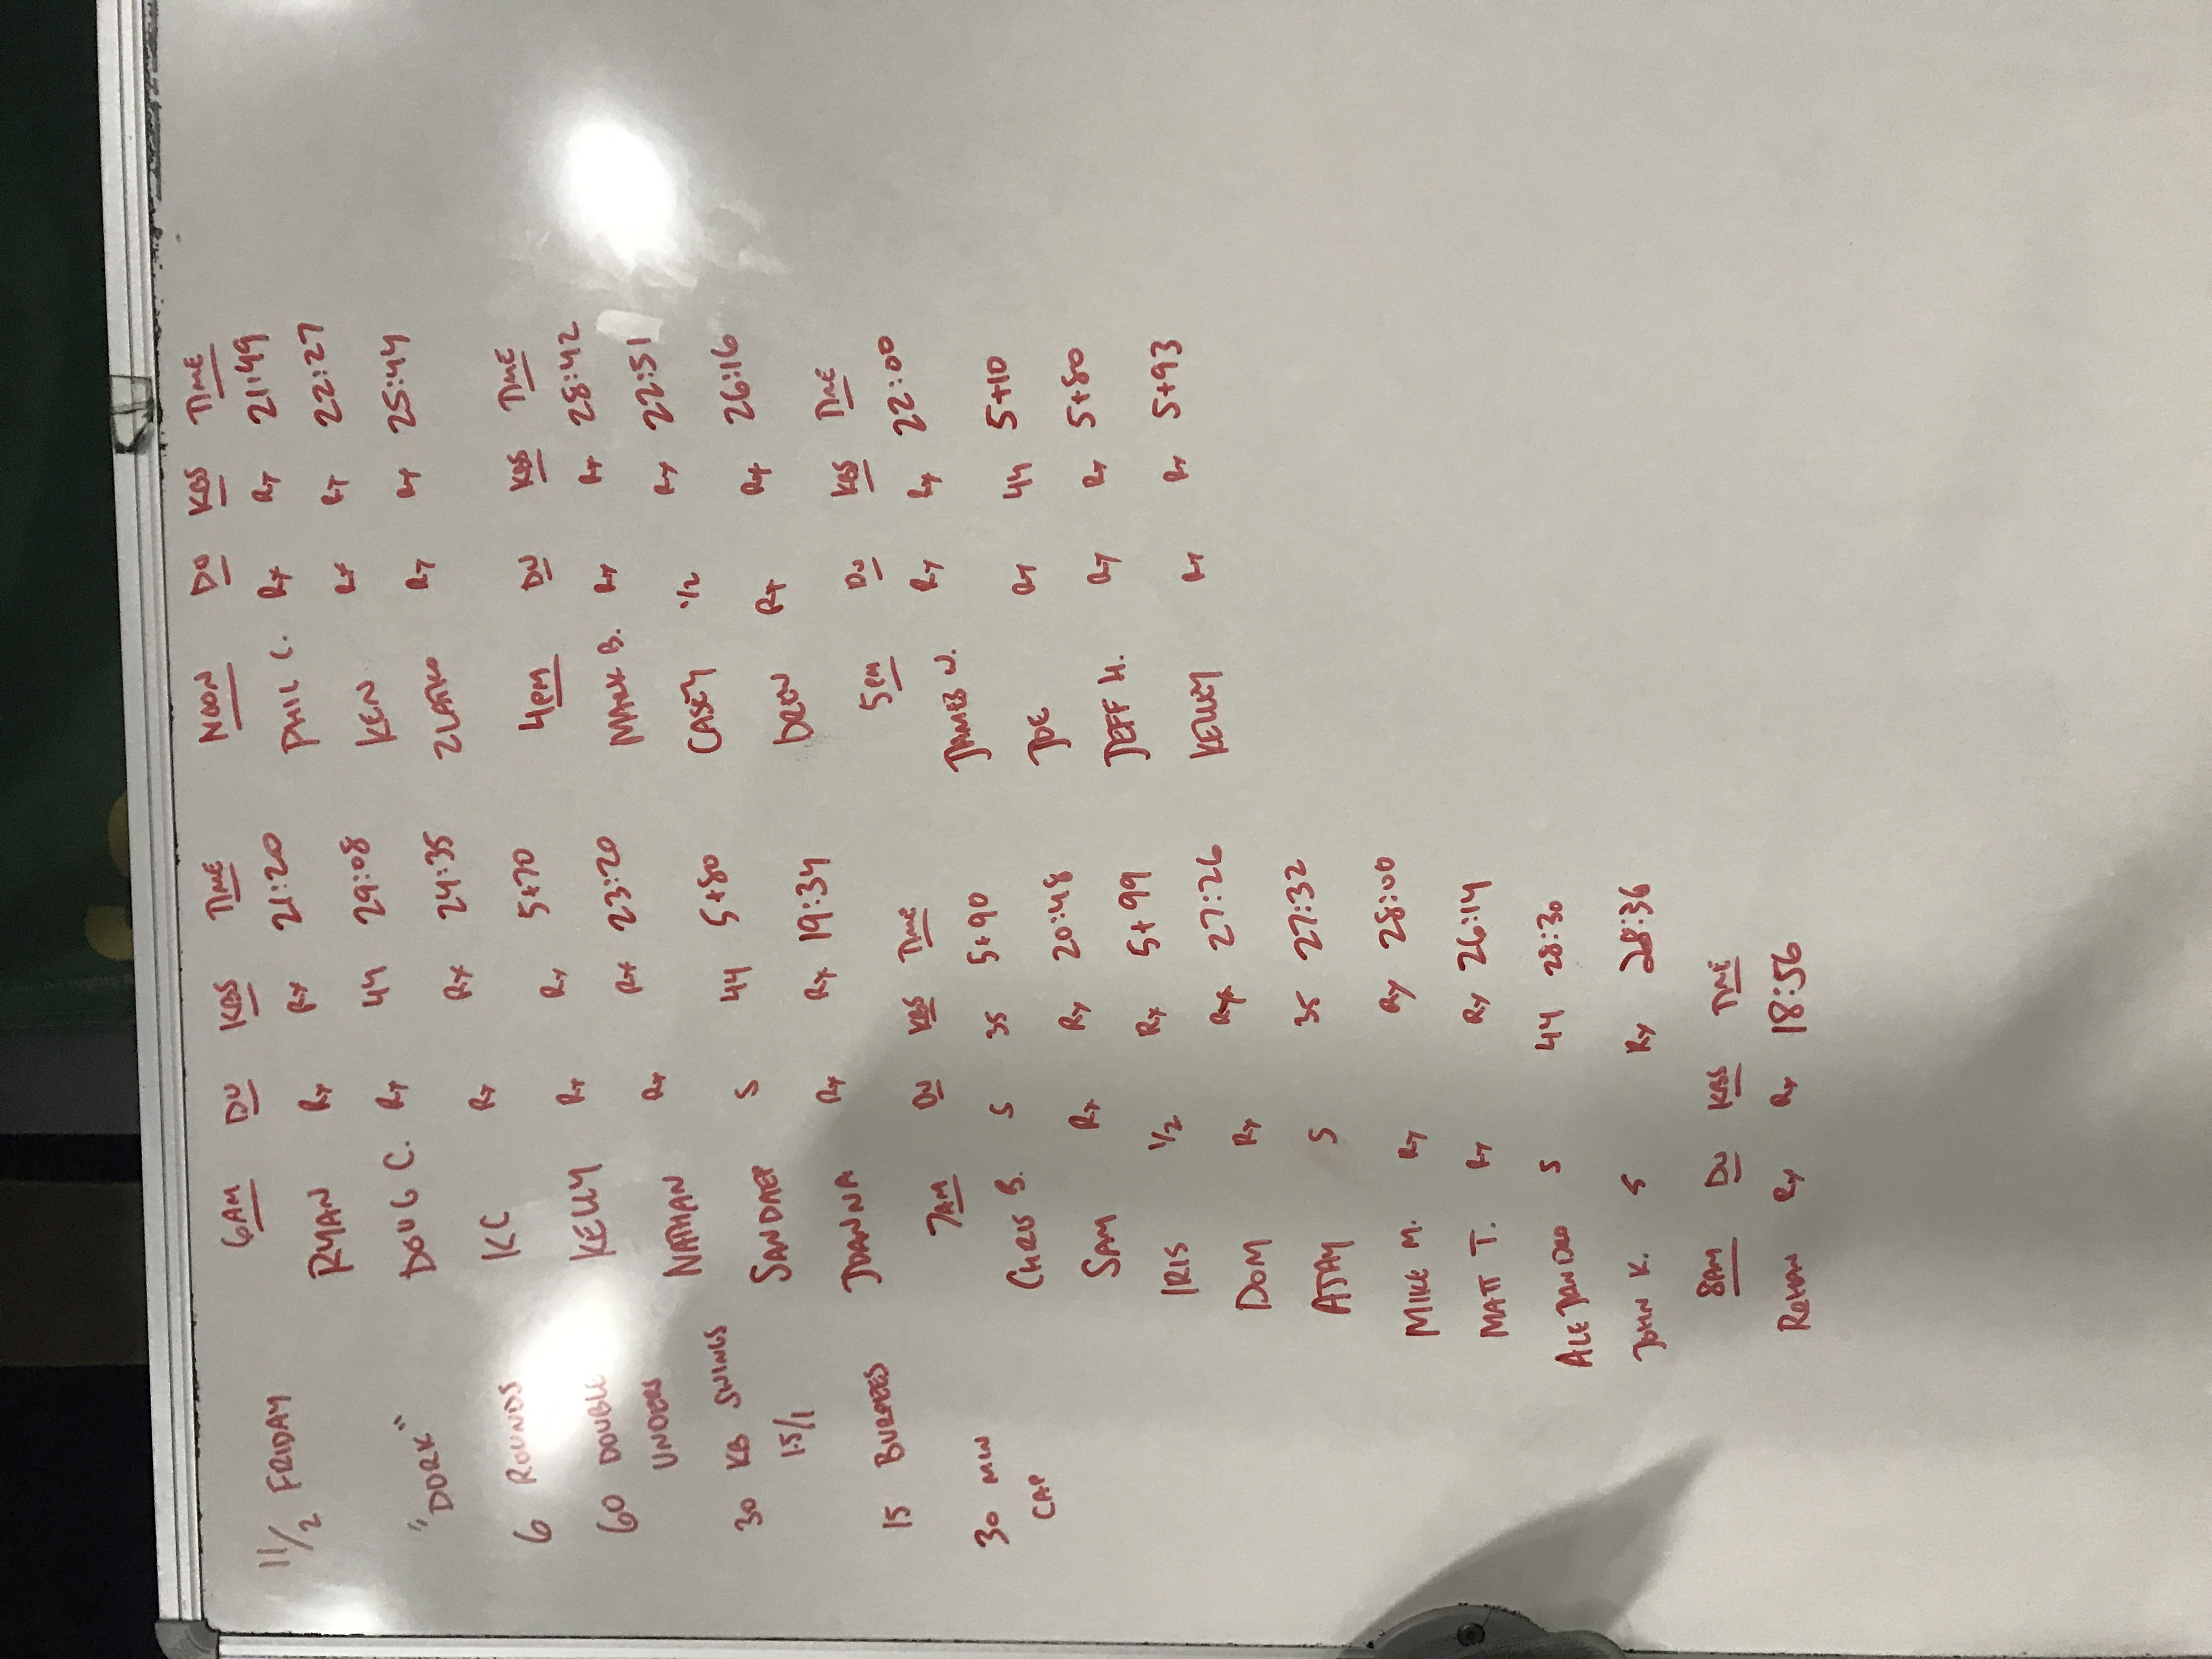 11/2 FRIDAY
"DORK"
6 ROUNDS
60 DOUBLE
UNDERS
30 KB SWINGS
1.5/1
15 BURPEES
30 MIN
CAP
6AM DU KBS TIME
RYAN Rx Rx 21:20
DOUG C. Rx 44 29:08
KC Rx Rx 24:35
KELLY Rx Rx 5+70
NATHAN Rx Rx 23:20
SANDAEP S 44 5+80
JOANNA Rx Rx 19:34
7AM DU KBS TIME
CHRIS B. S 35 5+90
SAM Rx Rx 20:48
IRIS 1/2 Rx 5+99
DOM Rx Rx 27:26
AJAY S 35 27:32
MIKE M. Rx Rx 28:00
MATT T. Rx Rx 26:14
ALEJANDRO S 44 28:30
JOHN K. S Rx 28:36
8AM DU KBS TIME
ROHAN Rx Rx 18:56
NOON DU KBS TIME
PHIL C. Rx Rx 21:49
KEN Rx Rx 22:27
ZLATKO Rx Rx 25:44
4PM DU KBS TIME
MARK B. Rx Rx 28:42
CASEY 1/2 Rx 22:51
DREW Rx Rx 26:16
5PM DU KBS TIME
JAMES W. Rx Rx 22:00
JOE Rx 44 5+10
JEFF H. Rx Rx 5+80
KELLEY Rx Rx 5+93